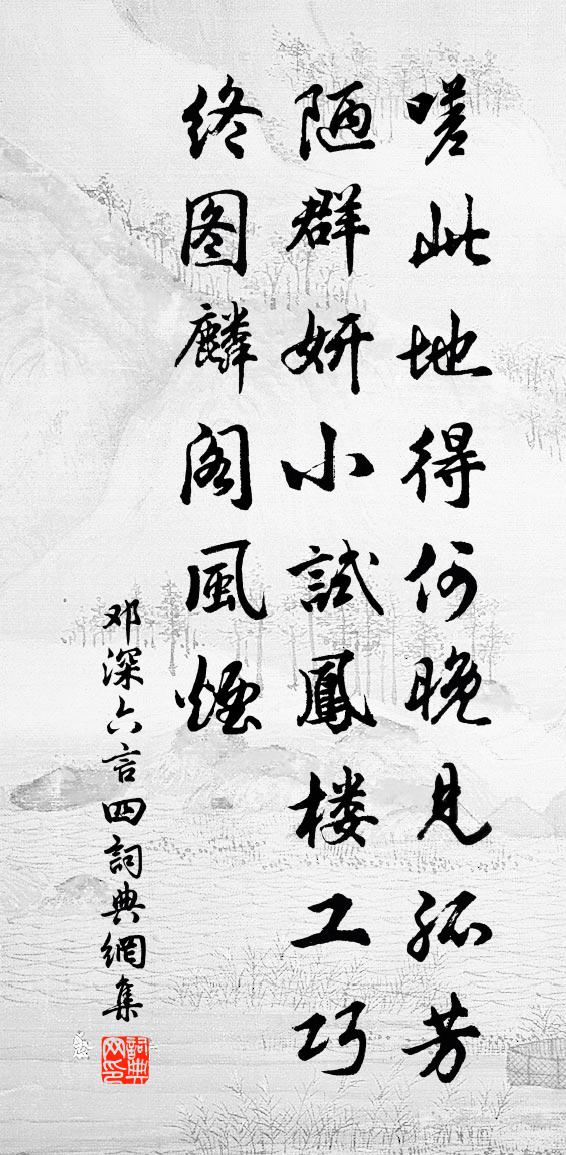 嗟此地得何晚見孤芳
陋群妍小試鳳楼工巧
终图麟阁風煙
邓深六言四詞典網集
詞典网印